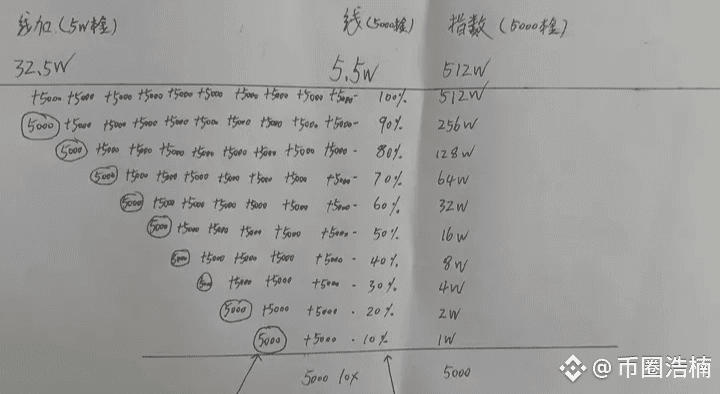 线加 (5W本金) 线 (5000本金) 指数 (5000本金)
32.5W 5.5W 512W
+5000 +5000 +5000 +5000 +5000 +5000 +5000 +5000 +5000- 100% 512W
5000 +5000 +5000 +5000 +5000 +5000 +5000 +5000 +5000- 90% 256W
5000 +5000 +5000 +5000 +5000 +5000 +5000 +5000- 80% 128W
5000 +5000 +5000 +5000 +5000 +5000 +5000- 70% 64W
5000 +5000 +5000 +5000 +5000 +5000- 60% 32W
5000 +5000 +5000 +5000 +5000- 50% 16W
5000 +5000 +5000 +5000 +5000- 40% 8W
5000 +5000 +5000 +5000- 30% 4W
5000 +5000 +5000 - 20% 2W
5000 +5000 - 10% 1W
5000 10X 5000
@币圈浩楠